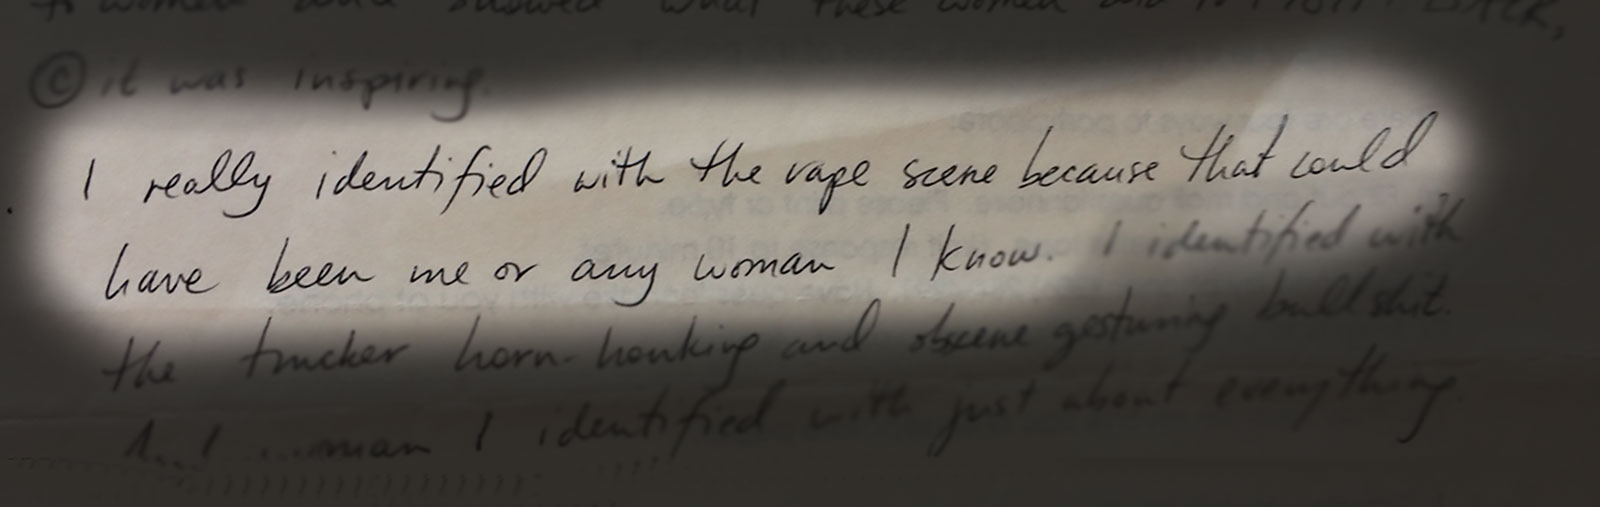 to women and showed what these women did to fight BACK,
© it was inspiring.
I really identified with the rape scene because that could
have been me or any woman I know. I identified with
the trucker horn-honking and obscene gesturing bullshit.
And woman I identified with just about everything.